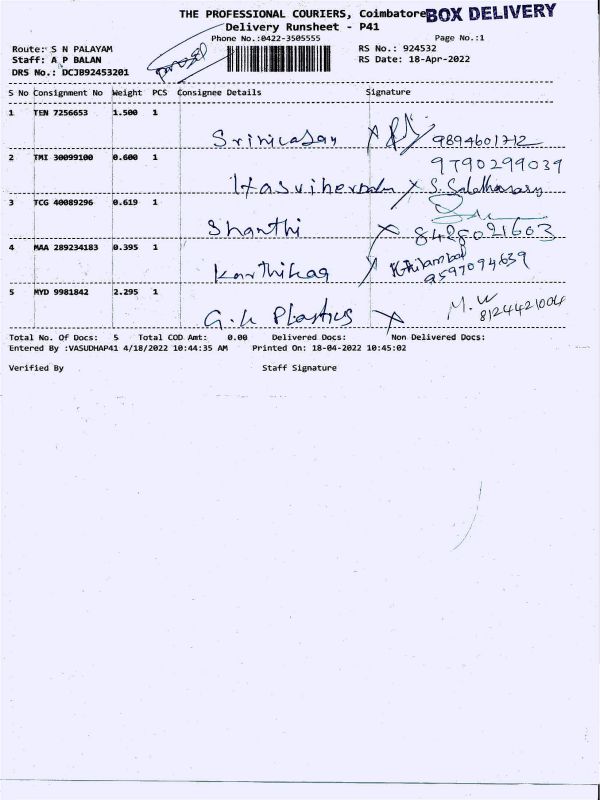 THE PROFESSIONAL COURIERS, Coimbatore BOX DELIVERY
Delivery Runsheet - P41
Phone No.:0422-3505555 Page No.:1
Route: S N PALAYAM RS No.: 924532
Staff: A P BALAN RS Date: 18-Apr-2022
DRS No.: DCJB92453201
S No Consignment No Weight PCS Consignee Details Signature
1 TEN 7256653 1.500 1
Srinivasan 9894601712
2 TMI 30099100 0.600 1 9790299039
3 TCG 40089296 0.619 1
Shanthi
4 MAA 289234183 0.395 1
Karthikaa 9597094639
5 MYD 9981842 2.295 1
G.K Plastics M. 8124421004
Total No. Of Docs: 5 Total COD Amt: 0.00 Delivered Docs: Non Delivered Docs:
Entered By :VASUDHAP41 4/18/2022 10:44:35 AM Printed On: 18-04-2022 10:45:02
Verified By Staff Signature